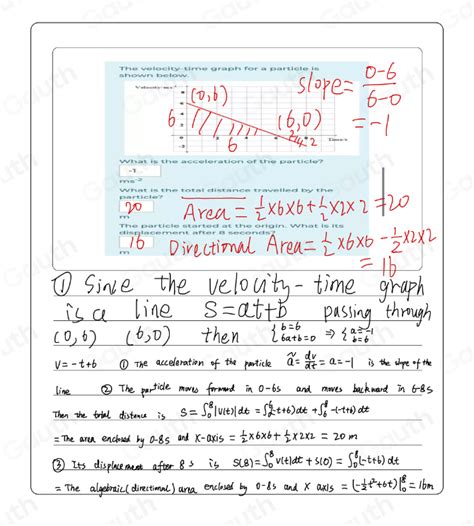 The velocity-time graph for a particle is
shown below.
Velocity-ms⁻¹
(0,6)
slope = 0-6 / 6-0
= -1
6
(6,0)
6
2
2
Time-s
What is the acceleration of the particle?
-1
ms⁻²
What is the total distance travelled by the
particle?
20
m
Area = 1/2 x6x6 + 1/2 x2x2 = 20
The particle started at the origin. What is its
displacement after 8 seconds?
16
m
Directional Area = 1/2 x6x6 - 1/2 x2x2
= 16
① Since the velocity-time graph
is a line S=at+b passing through
(0,6) (6,0) then { b=6 6a+b=0 ⇒ { a=-1 b=6
V=-t+6 ① The acceleration of the particle a = dv/dt = a = -1 is the slope of the
line ② The particle moves forward in 0-6s and moves backward in 6-8s
Then the total distance is S = ∫₀⁸ |V(t)| dt = ∫₀⁶ (-t+6) dt + ∫₆⁸ -(-t+6) dt
= The area enclosed by 0-8s and x-axis = 1/2 x6x6 + 1/2 x2x2 = 20 m
③ Its displacement after 8 s is S(8) = ∫₀⁸ v(t) dt + S(0) = ∫₀⁸ (-t+6) dt
= The algebraic (directional) area enclosed by 0-8s and X axis = (-1/2 t² + 6t) |₀⁸ = 16m